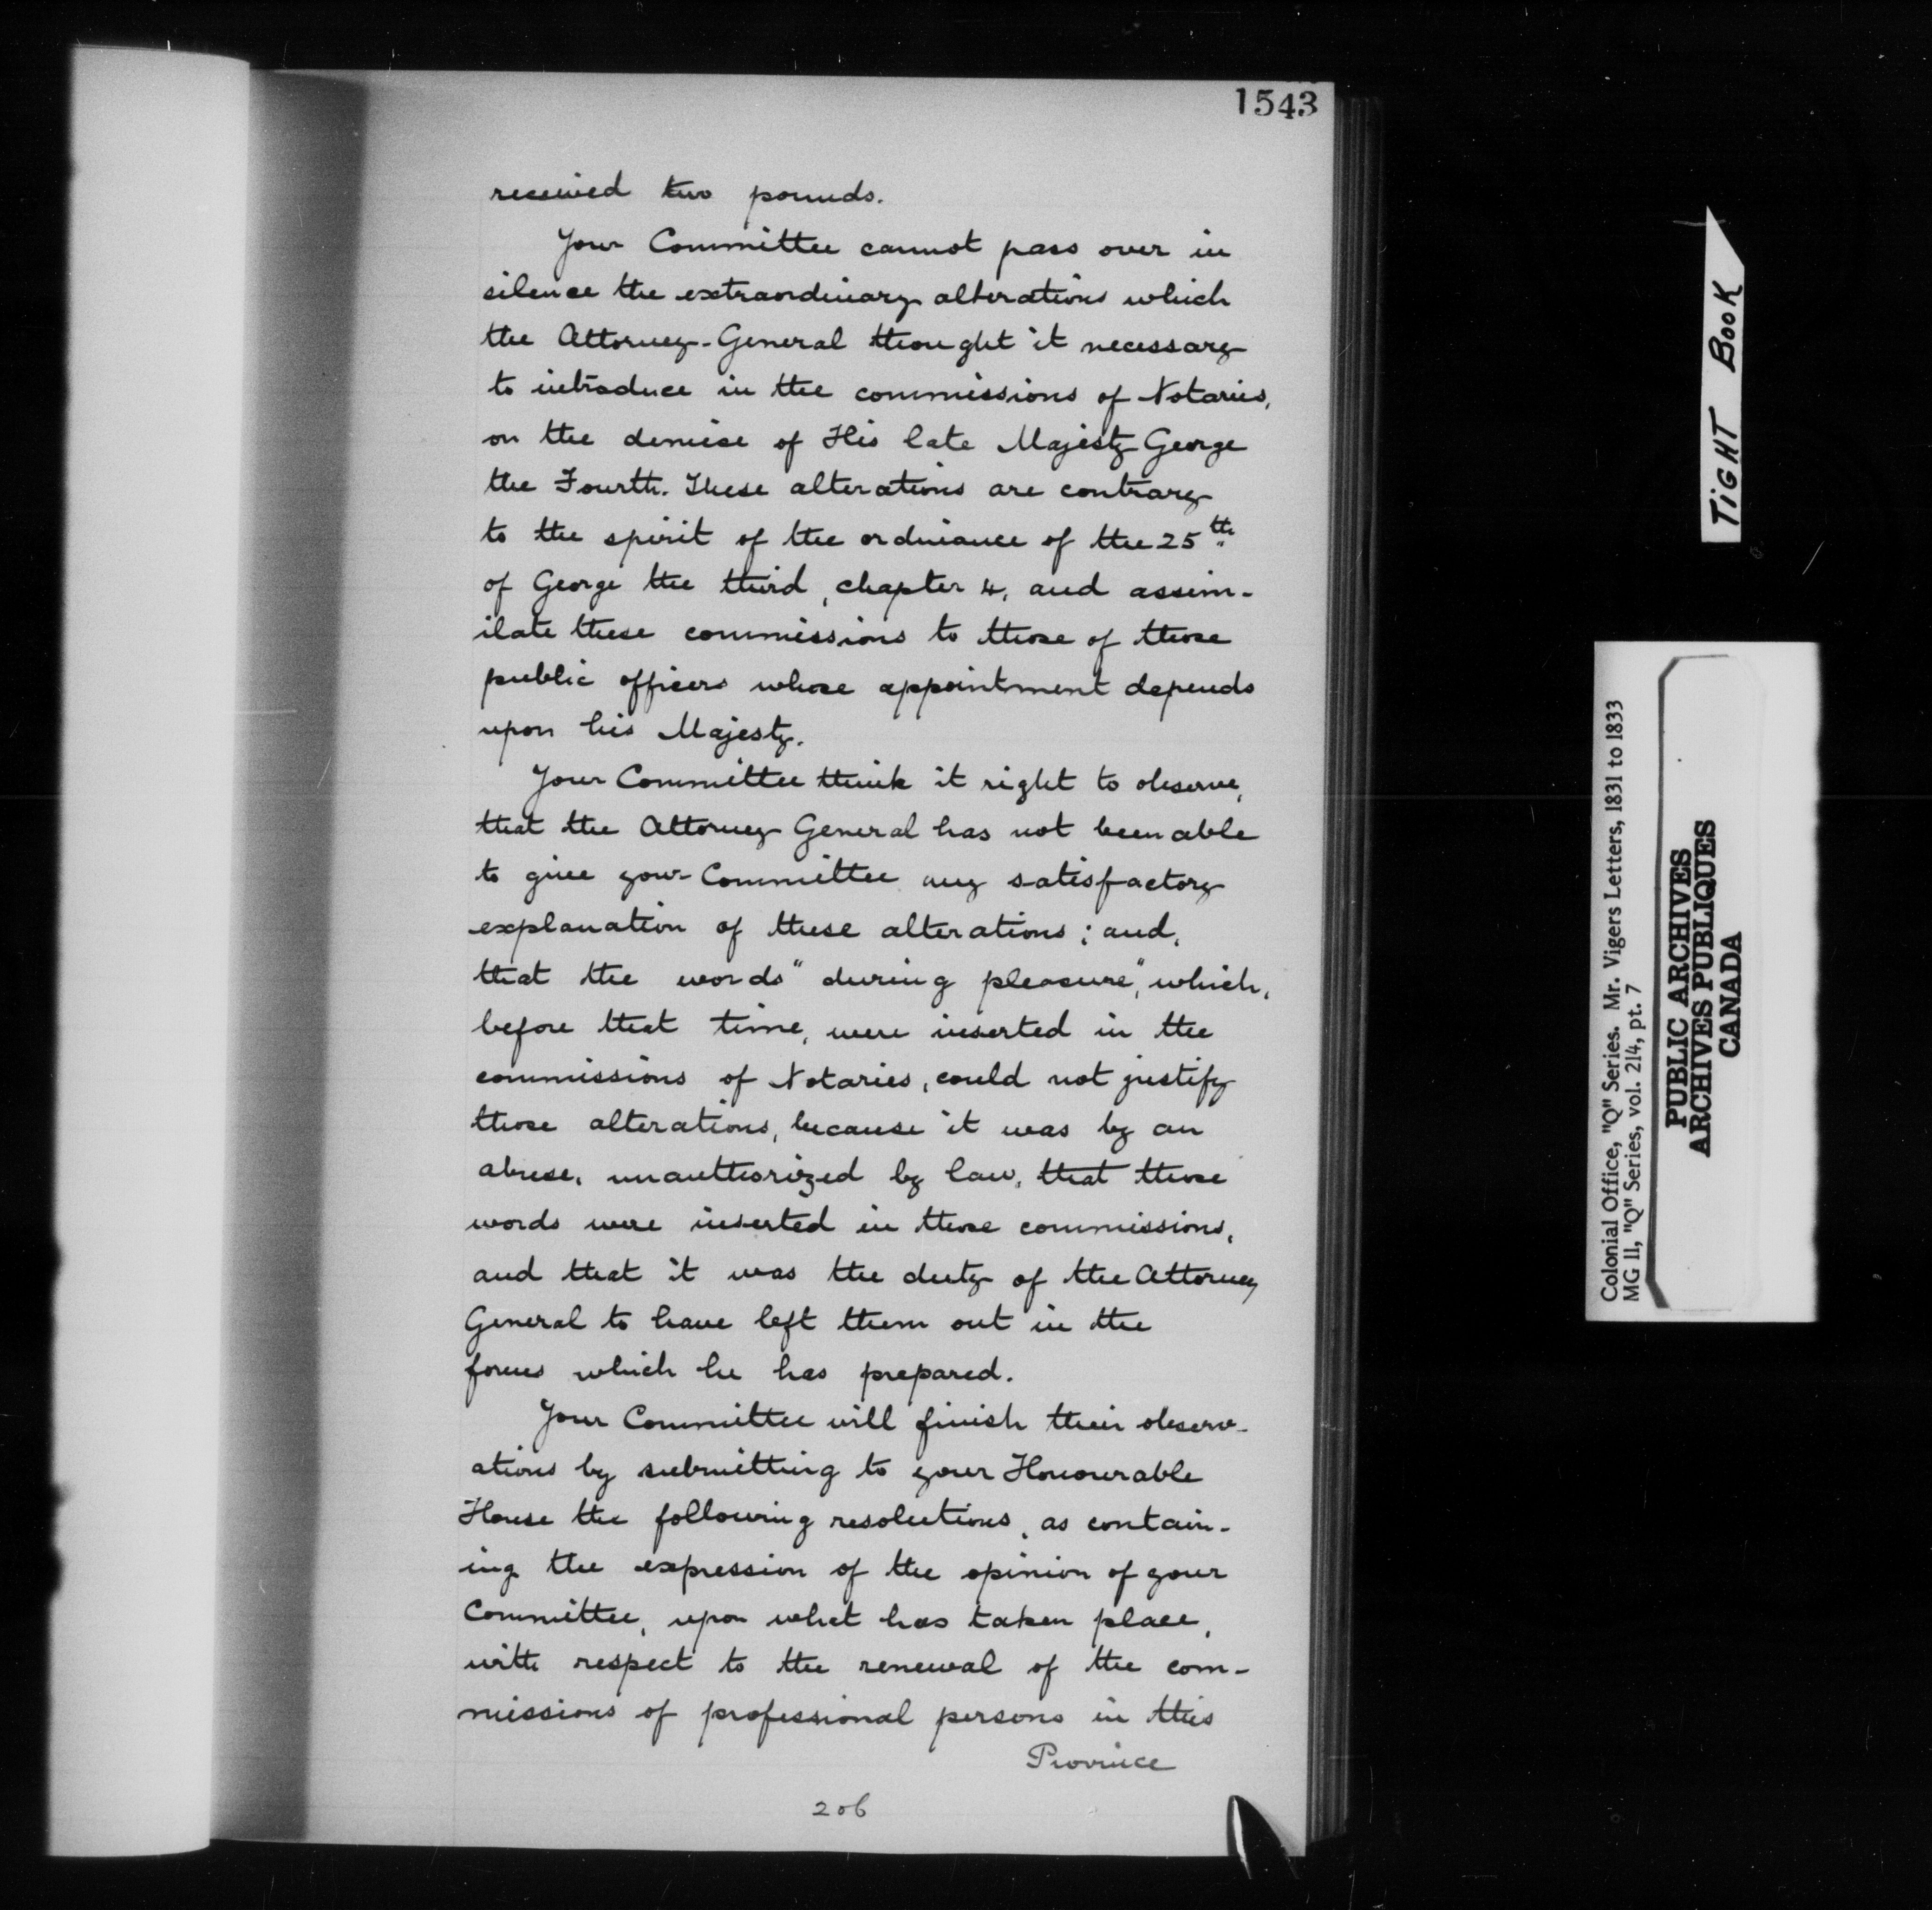 1543
received two pounds.
Your Committee cannot pass over in
silence the extraordinary alterations which
the Attorney-General thought it necessary
to introduce in the commissions of Notaries,
on the demise of His late Majesty George
the Fourth. These alterations are contrary
to the spirit of the ordinance of the 25th
of George the third, chapter 4, and assim-
ilate these commissions to those of those
public officers whose appointment depends
upon his Majesty.
Your Committee think it right to observe,
that the Attorney General has not been able
to give your Committee any satisfactory
explanation of these alterations; and,
that the words "during pleasure", which,
before that time, were inserted in the
commissions of Notaries, could not justify
those alterations, because it was by an
abuse, unauthorized by law, that those
words were inserted in those commissions,
and that it was the duty of the Attorney
General to have left them out in the
forms which he has prepared.
Your Committee will finish their observ-
ations by submitting to your Honourable
House the following resolutions, as contain-
ing the expression of the opinion of your
Committee, upon what has taken place,
with respect to the renewal of the com-
missions of professional persons in this
Province
206
TIGHT BOOK
Colonial Office, "Q" Series. Mr. Vigers Letters, 1831 to 1833
MG 11, "Q" Series, vol. 214, pt. 7
PUBLIC ARCHIVES
ARCHIVES PUBLIQUES
CANADA